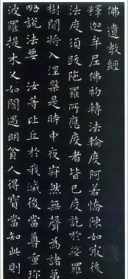 佛遺教經
釋迦牟尼佛初轉法輪度阿若憍陳如最後
法度須跋陀羅所應度者皆已度訖於娑羅
樹間將入涅槃是時中夜寂然無聲為諸
略說法要汝等比丘於我滅後當尊重珍
波羅提木叉如闇遇明貧人得寶當知此則